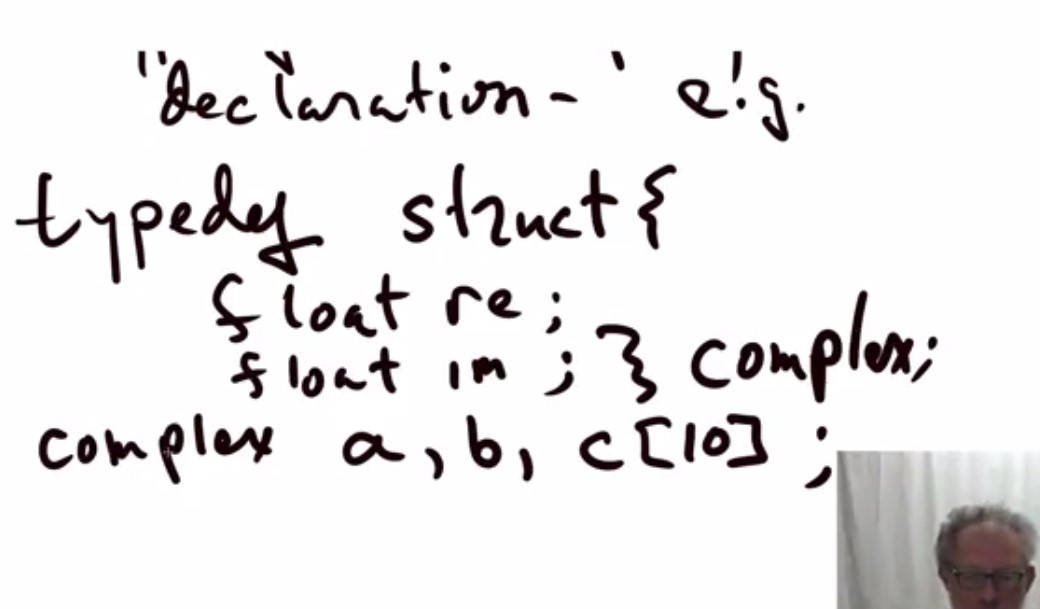 "declaration-' e.g.
typedef struct {
float re ;
float im ; } complex;
complex a, b, c[10] ;